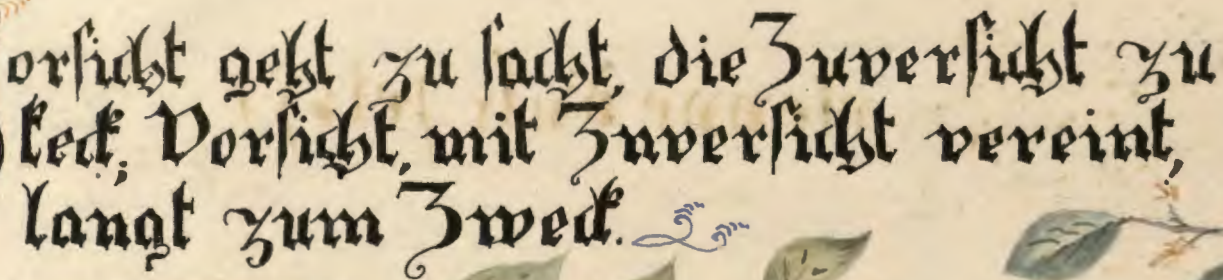 orsicht geht zu sacht, die Zuversicht zu
keck; Vorsicht, mit Zuversicht vereint,
langt zum Zweck.